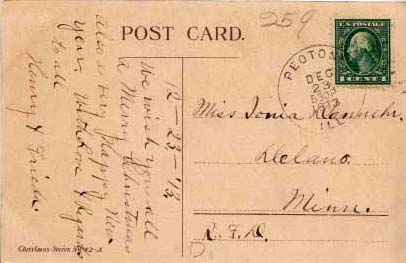 259
POST CARD.
PEOTONE
DEC
23
ILL
U.S. POSTAGE
1 CENT 1
12-23-'13
We wish you all
a Merry Christmas
also a very Happy New
year. With love & Regards
to all
Henry & Frieda
Miss Tonia
Delano
Minn.
R. F. D.
Christmas Series No. 22-A